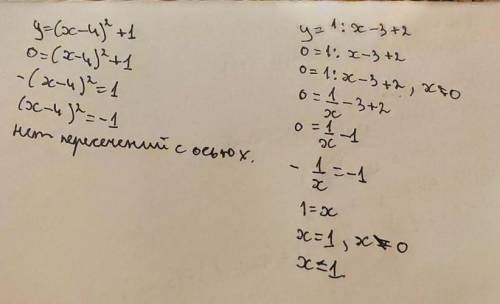 y=(x-4)²+1
0=(x-4)²+1
-(x-4)²=1
(x-4)²=-1
нет пересечений с осью х.
y=1:x-3+2
0=1:x-3+2
0=1:x-3+2, x≠0
0=1/x-3+2
0=1/x-1
-1/x=-1
1=x
x=1, x≠0
x=1